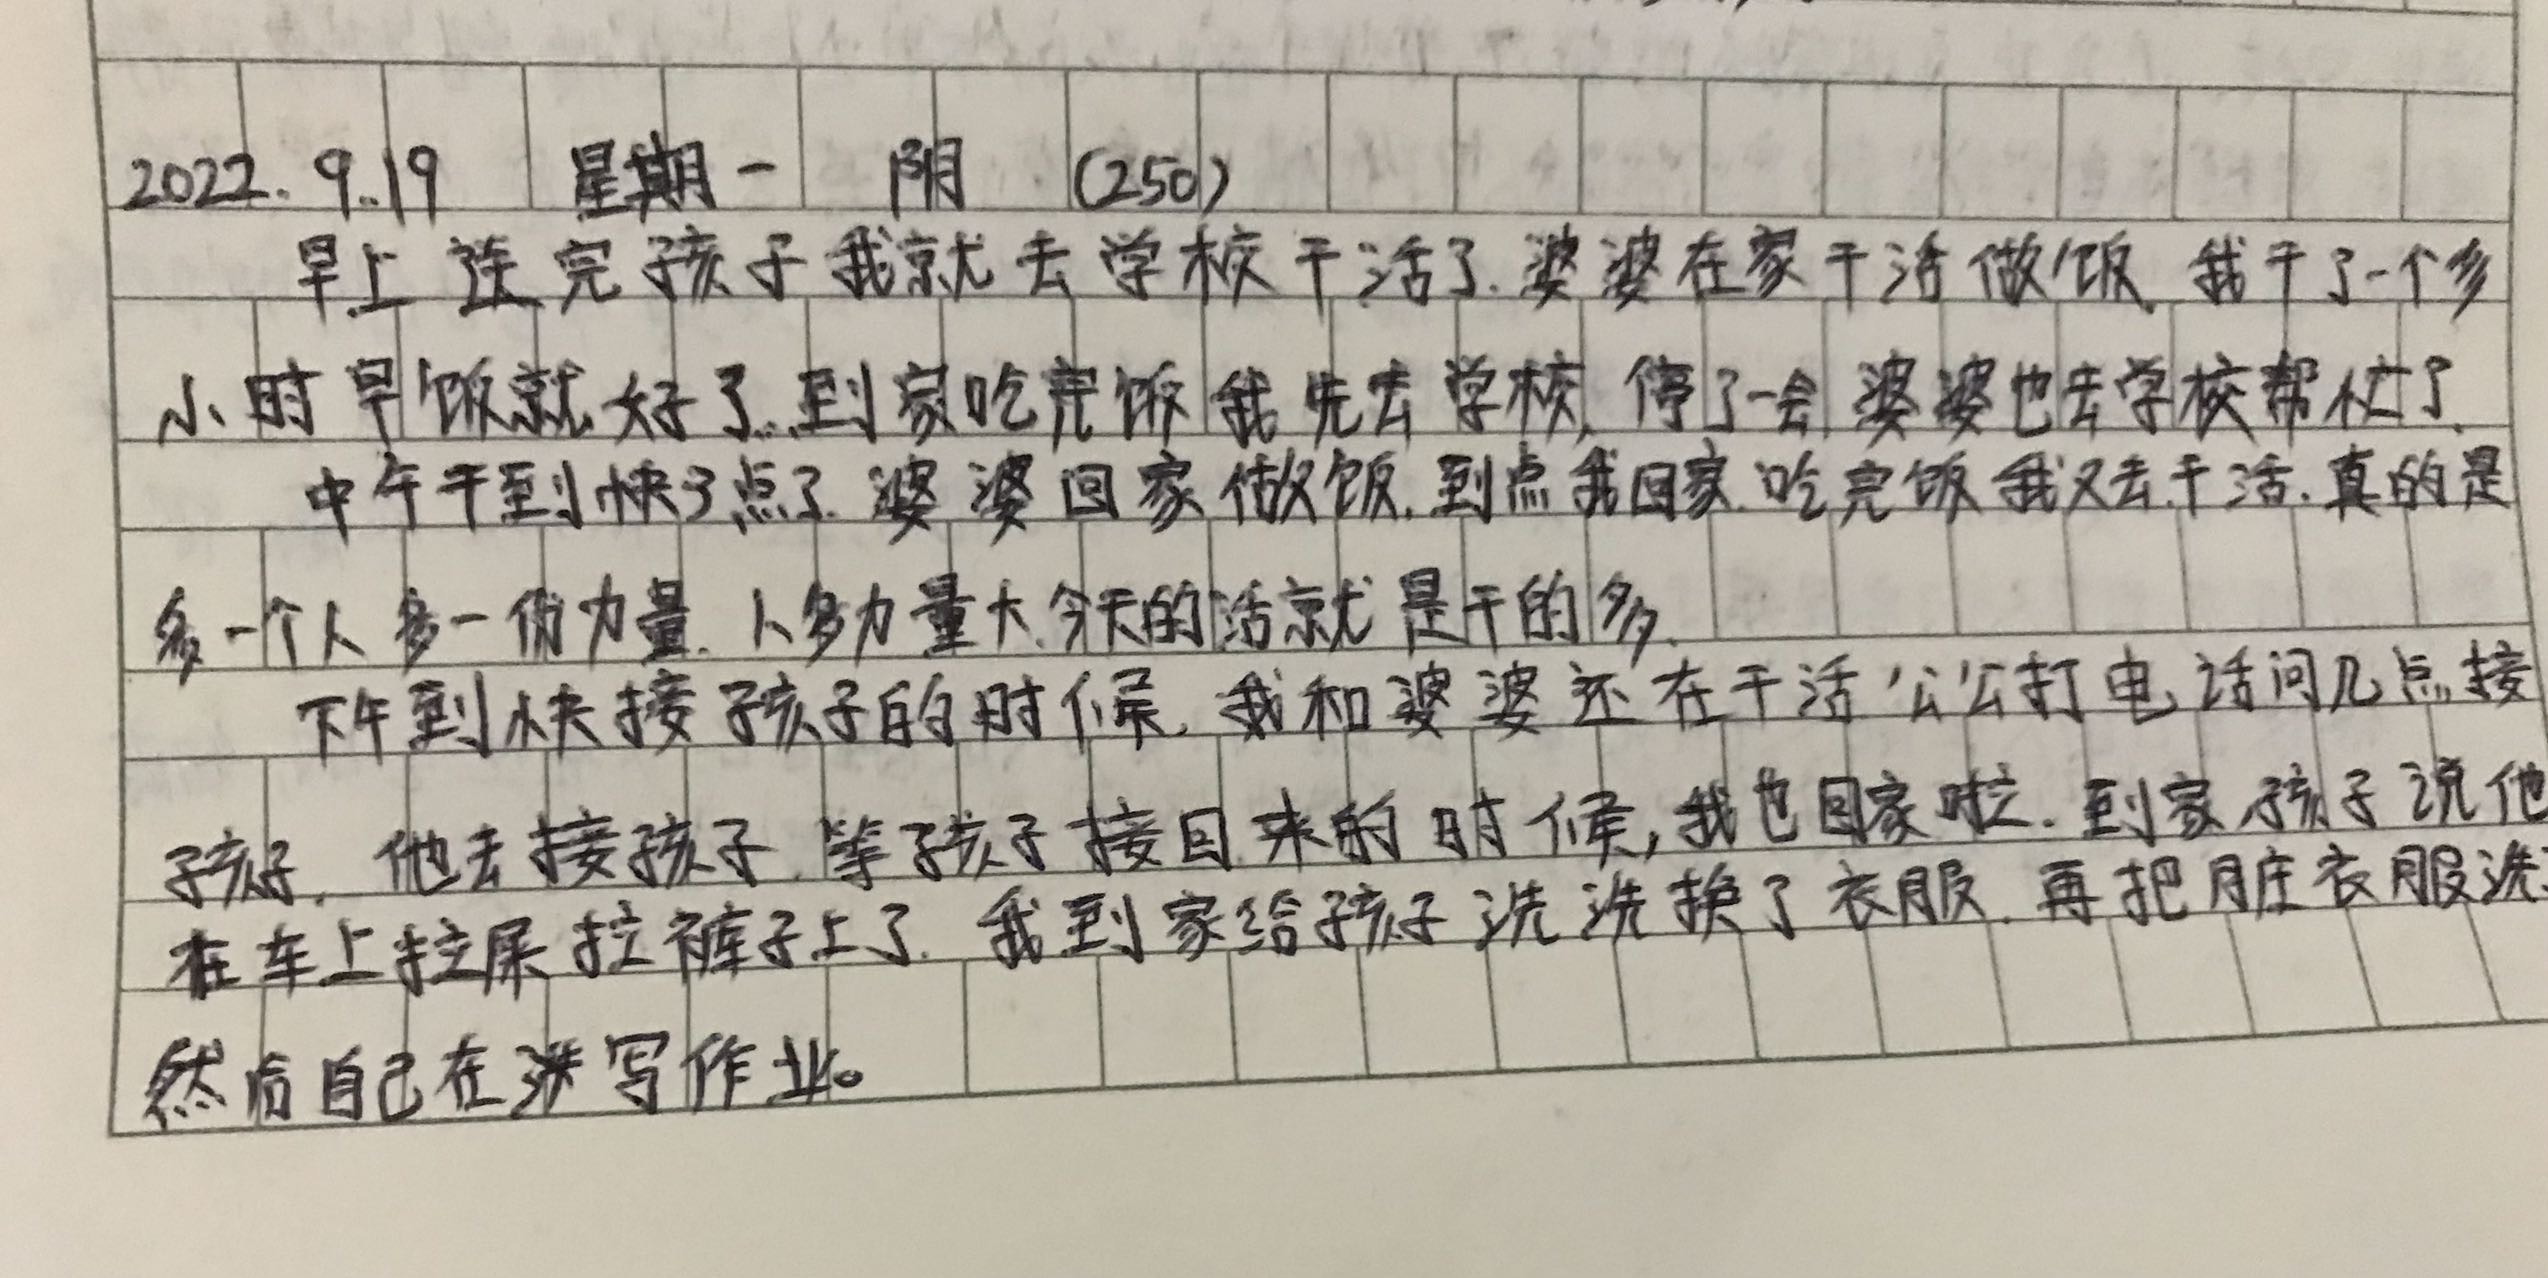 2022.9.19 星期一 阴 (250)
早上送完孩子我就去学校干活了.婆婆在家干活做饭.我干了一个多
小时早饭就好了.到家吃完饭我先去学校,停了一会,婆婆也去学校帮忙了.
中午干到快3点了.婆婆回家做饭.到点我回家.吃完饭我又去干活.真的是
多一个人多一份力量.人多力量大.今天的活就是干的多.
下午到快接孩子的时候,我和婆婆还在干活,公公打电话问几点接
孩子,他去接孩子.等孩子接回来的时候,我也回家啦.到家孩子说他
在车上拉屎拉裤子上了.我到家给孩子洗洗换了衣服.再把脏衣服洗
然后自己在 写作业。